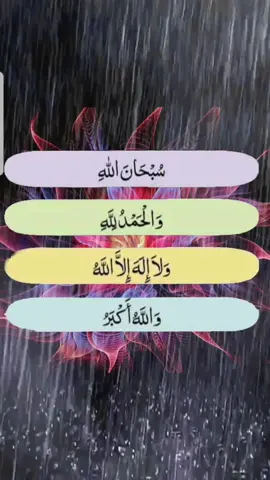 سُبْحَانَ اللهِ
وَالْحَمْدُ لِلَّهِ
وَلاَ إِلَهَ إِلاَّ اللَّهُ
وَاللَّهُ أَكْبَرُ